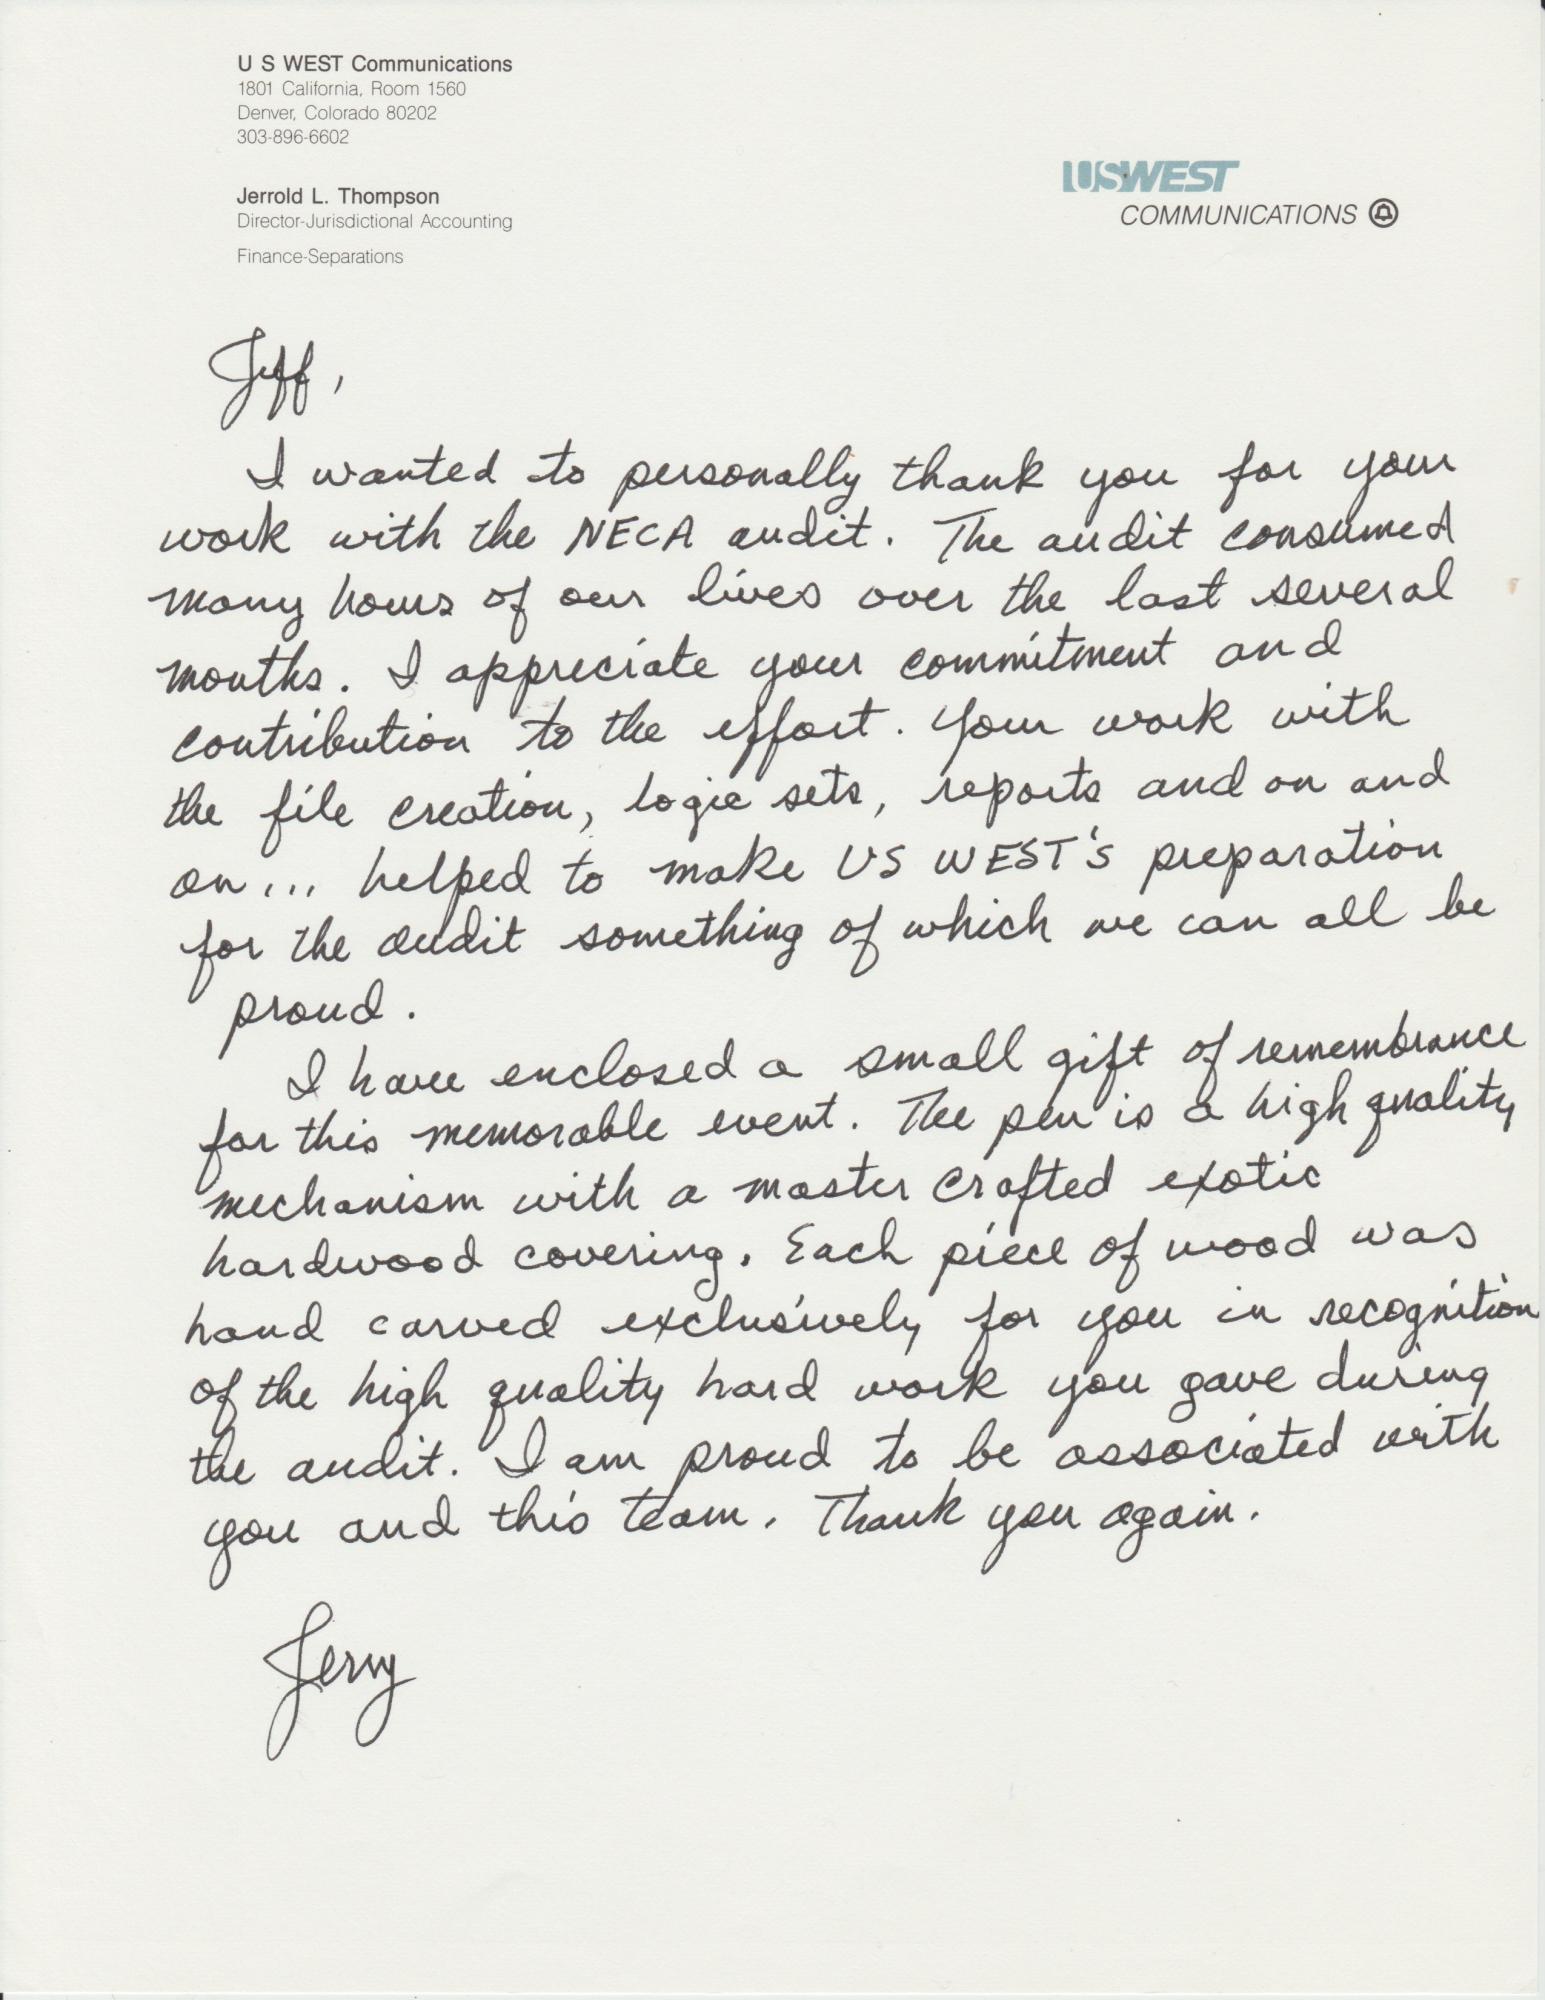 U S WEST Communications
1801 California, Room 1560
Denver, Colorado 80202
303-896-6602
Jerrold L. Thompson
Director-Jurisdictional Accounting
Finance-Separations
USWEST
COMMUNICATIONS
Jeff,
I wanted to personally thank you for your
work with the NECA audit. The audit consumed
many hours of our lives over the last several
months. I appreciate your commitment and
contribution to the effort. Your work with
the file creation, logic sets, reports and on and
on... helped to make US WEST's preparation
for the audit something of which we can all be
proud.
I have enclosed a small gift of remembrance
for this memorable event. The pen is a high quality
mechanism with a master crafted exotic
hardwood covering. Each piece of wood was
hand carved exclusively for you in recognition
of the high quality hard work you gave during
the audit. I am proud to be associated with
you and this team. Thank you again.
Jerry